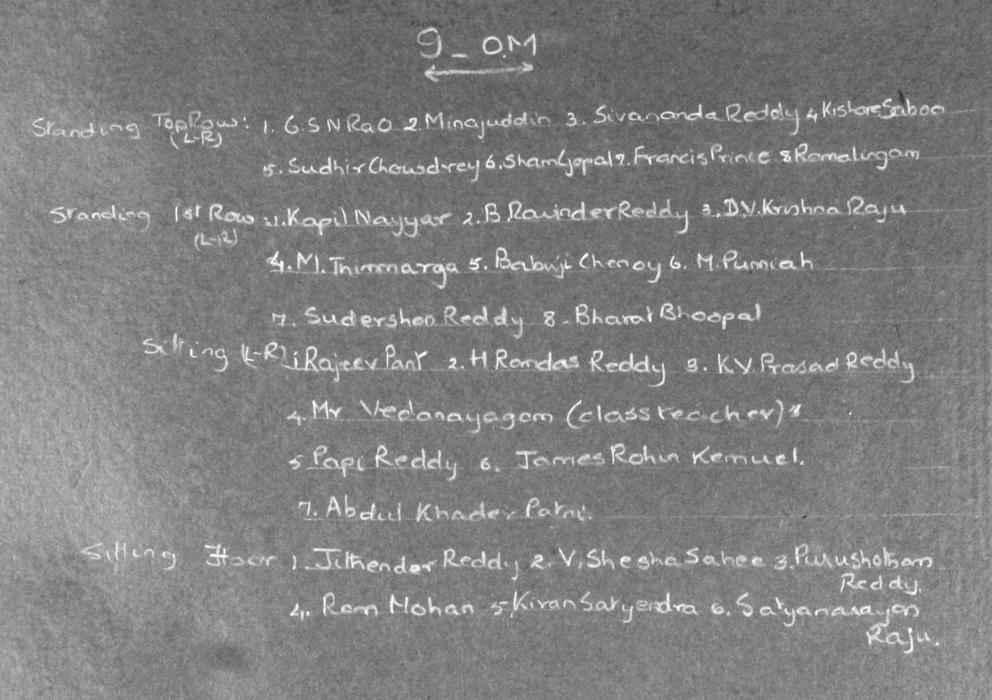 9 - O.M
Standing Top Row: 1. G.S N Rao 2. Minajuddin 3. Sivananda Reddy 4 Kishore Saboo
(L-R)
5. Sudhir Chowdrey 6. Sham Gopal 7. Francis Prince 8 Ramalingam
Standing 1st Row :1. Kapil Nayyar 2. B Ravinder Reddy 3. D.V. Krishna Raju
(L-R)
4. M. Thimmarga 5. Babuji Chenoy 6. M. Punniah
7. Sudershan Reddy 8 - Bharat Bhoopal
Sitting (L-R) 1 Rajeev Pant 2. H Ramdas Reddy 3. K V Prasad Reddy
4. Mr Vedanayagam (class teacher)
5 Papi Reddy 6. James Rohin Kemuel.
7. Abdul Khader Patni.
Sitting Floor 1. Jithender Reddy 2. V. Shesha Sahee 3. Purushotham
Reddy.
4. Ram Mohan 5. Kiran Satyendra 6. Satyanarayan
Raju.